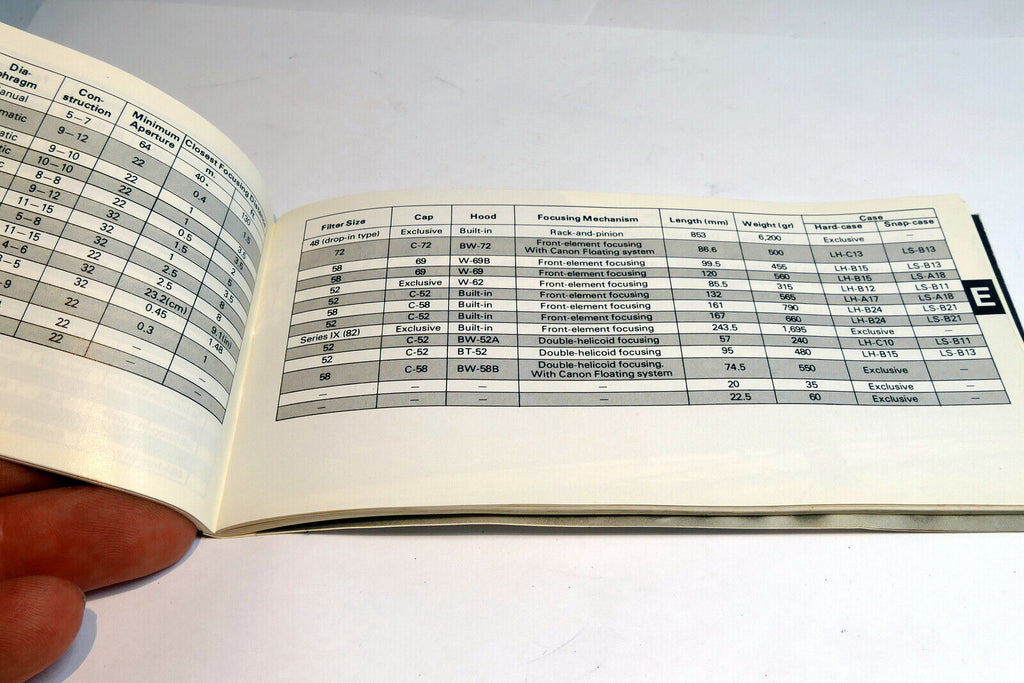 Dia-
phragm
Con-
struction
Minimum
Aperture
Closest Focusing Distance
m.
ft.
anual 5–7 64 40. 130
matic 9–12 22 0.4 1.5
atic 9–10 22 1
tic 10–10 22 1
c 8–8 22 0.5
9–12 32 1.5 5
11–15 32 1 3.5
5–8 32 2.5 8
11–15 22 2.5 8
4–6 32 23.2(cm) 9.1(in)
–5 32 0.45 1.48
–9 22 0.3 1
22 — —
22 — —
Filter Size Cap Hood Focusing Mechanism Length (mm) Weight (gr) Case
Hard-case Snap-case
48 (drop-in type) Exclusive Built-in Rack-and-pinion 853 6,200 Exclusive —
72 C-72 BW-72 Front-element focusing
With Canon Floating system 86.6 500 LH-C13 LS-B13
58 69 W-69B Front-element focusing 99.5 455 LH-B15 LS-B13
58 69 W-69 Front-element focusing 120 560 LH-B15 LS-A18
52 Exclusive W-62 Front-element focusing 85.5 315 LH-B12 LS-B11
52 C-52 Built-in Front-element focusing 132 565 LH-A17 LS-A18
58 C-58 Built-in Front-element focusing 161 790 LH-B24 LS-B21
52 C-52 Built-in Front-element focusing 167 660 LH-B24 LS-B21
Series IX (82) Exclusive Built-in Front-element focusing 243.5 1,695 Exclusive —
52 C-52 BW-52A Double-helicoid focusing 57 240 LH-C10 LS-B11
52 C-52 BT-52 Double-helicoid focusing 95 480 LH-B15 LS-B13
58 C-58 BW-58B Double-helicoid focusing.
With Canon Floating system 74.5 550 Exclusive —
— — — — 20 35 Exclusive —
— — — — 22.5 60 Exclusive —
E